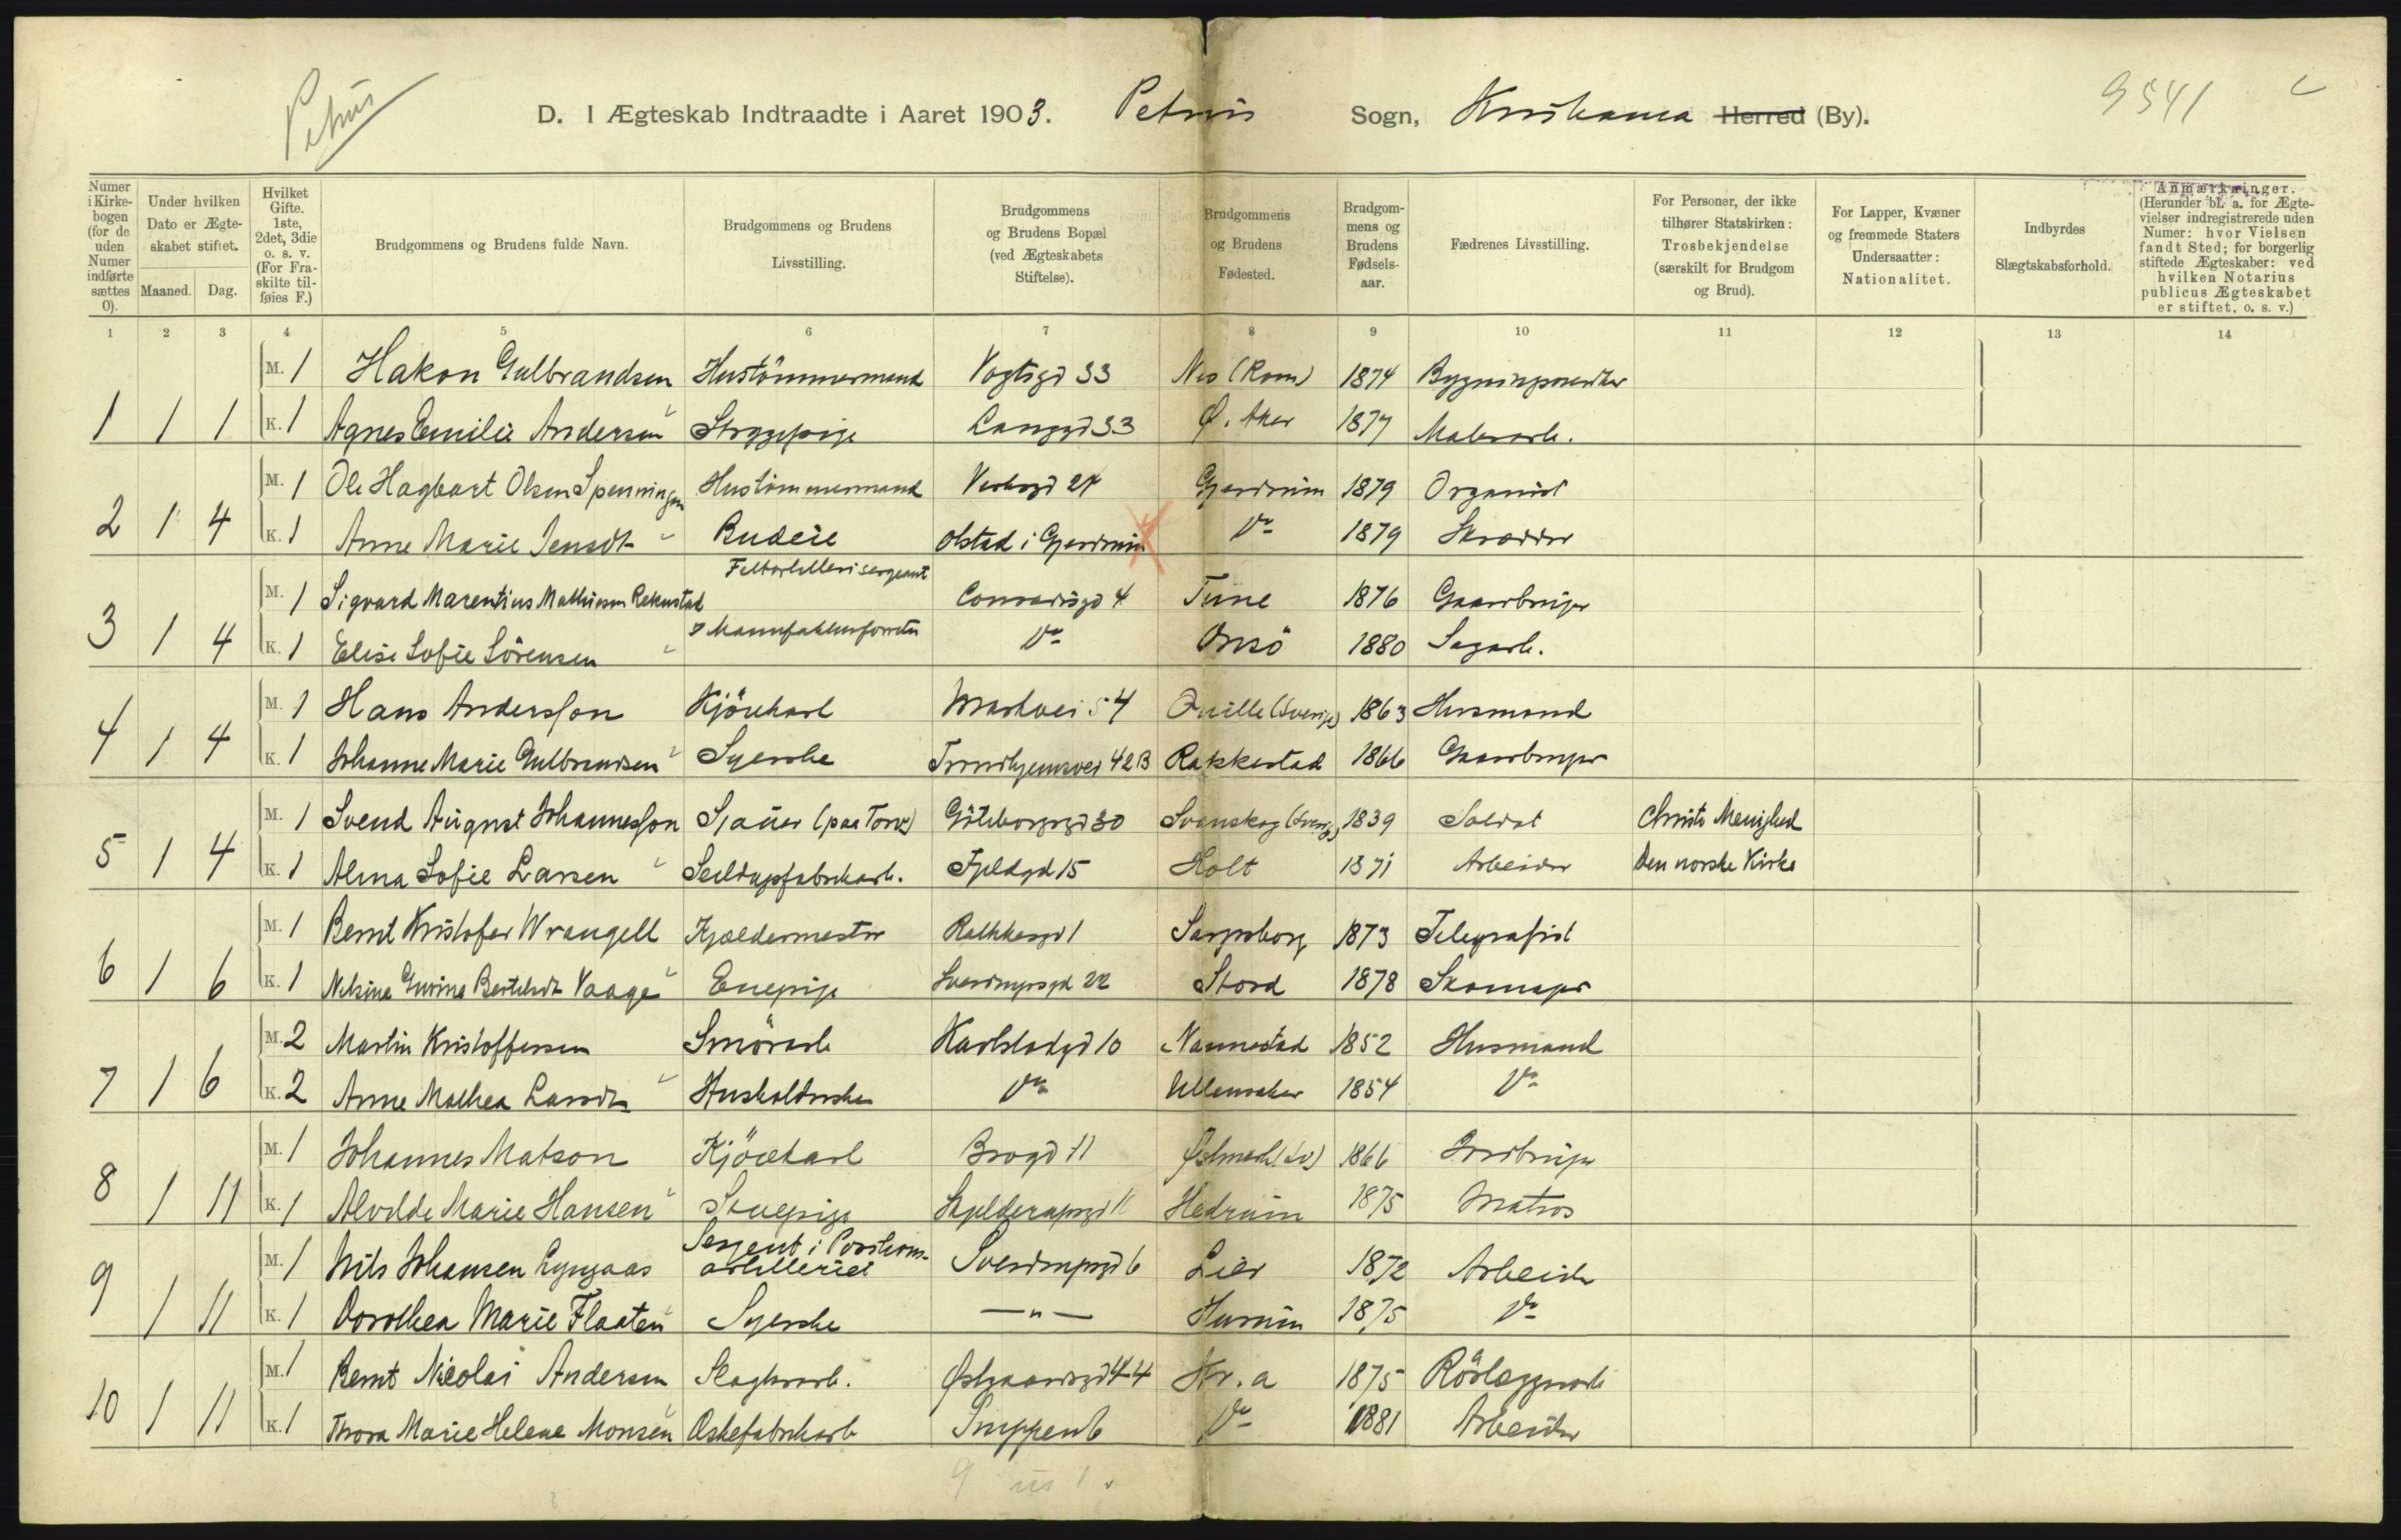 Petrus
D. I Ægteskab Indtraadte i Aaret 1903. Petrus Sogn, Kristiania Herred (By).
9541
Numer i Kirkebogen (for de uden Numer indførte sættes 0).
Under hvilken Dato er Ægteskabet stiftet.
Maaned. Dag.
Hvilket Gifte. 1ste, 2det, 3die o. s. v. (For Fraskilte tilføies F.)
Brudgommens og Brudens fulde Navn.
Brudgommens og Brudens Livsstilling.
Brudgommens og Brudens Bopæl (ved Ægteskabets Stiftelse).
Brudgommens og Brudens Fødested.
Brudgommens og Brudens Fødselsaar.
Fædrenes Livsstilling.
For Personer, der ikke tilhører Statskirken: Trosbekjendelse (særskilt for Brudgom og Brud).
For Lapper, Kvæner og fremmede Staters Undersaatter: Nationalitet.
Indbyrdes Slægtskabsforhold.
Anmærkninger. (Herunder bl. a. for Ægtevielser indregistrerede uden Numer: hvor Vielsen fandt Sted; for borgerlig stiftede Ægteskaber: ved hvilken Notarius publicus Ægteskabet er stiftet, o. s. v.)
1 2 3 4 5 6 7 8 9 10 11 12 13 14
M. 1 Hakon Gulbrandsen Hustömmermand Vogtsgd 33 Nes (Rom) 1874
1 1 1 K. 1 Agnes Emilie Andersen Strygepige Langgd 33 Ø. Aker 1877 Malerarb.
M. 1 Ole Hagbart Olsen Spenningen Hustömmermand 24 Gjerdrum 1879 Organist
2 1 4 K. 1 Anne Marie Jensdt Budeie Olstad i Gjerdrum Do 1879 Skrædder
M. 1 Sigvard Marentius Mathiesen Rekustad Feltartillerisergeant Conradisgd 4 Tune 1876 Gaardbruger
3 1 4 K. 1 Elise Sofie Sörensen Do Onsö 1880 Sagarb.
M. 1 Hans Andersson Kjörekarl Markvei 54 Qville (Sverige) 1863 Husmand
4 1 4 K. 1 Johanne Marie Gulbrandsen Syerske Trondhjemsvei 42B Rakkestad 1866 Gaardbruger
M. 1 Svend August Johannesson Sjauer (paa Torv) Göteborggd 30 Svanskog (Sverige) 1839 Soldat Christi Menighed
5 1 4 K. 1 Alma Sofie Larsen Seildugsfabrikarb. Fjeldgd 15 Holt 1871 Arbeider Den norske Kirke
M. 1 Bernt Kristofer Wrangell Kjældermester Rathkesgd 1 Sarpsborg 1873 Telegrafist
6 1 6 K. 1 Nelsine Gurine Bertelsdt Vaage Enepige Sverdrupsgd 22 Stord 1878 Skomager
M. 2 Martin Kristoffersen Smörarb Karlstadgd 10 Nannestad 1852 Husmand
7 1 6 K. 2 Anne Mathea Larsdt Husholderske Do Ullensaker 1854 Do
M. 1 Johannes Matson Kjörekarl Brogd 11 Østmark (Sv) 1866 Jordbruger
8 1 11 K. 1 Alvilde Marie Hansen Stuepige Skjelderupsgd 11 Hedrum 1875 Matros
M. 1 Nils Johansen Lyngaas Sergent i Positionsartilleriet Sverdrupsgd 6 Lier 1872 Arbeider
9 1 11 K. 1 Dorothea Marie Flaaten Syerske — " — Hurum 1875 Do
M. 1 Bernt Nicolai Andersen Slagterarb. Østgaardsgd 44 Kr.a 1875 Rörlæggerarb
10 1 11 K. 1 Thora Marie Helene Monsen Æskefabrikarb Snippen 6 Do 1881 Arbeider